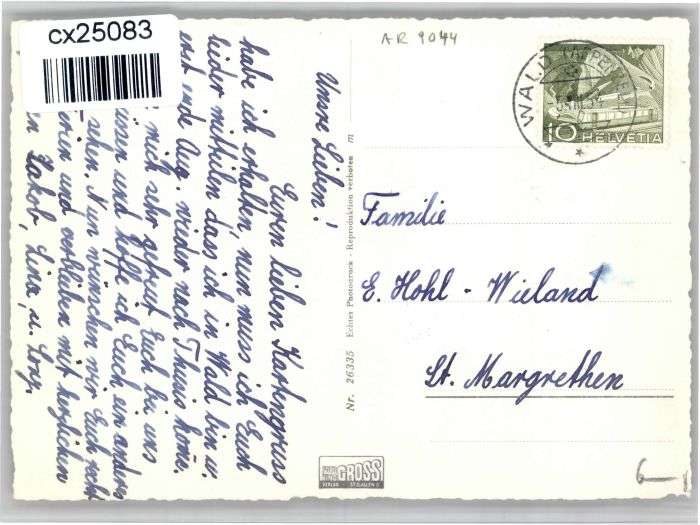 cx25083
AR 9044
WALD (APPENZELL)
10 HELVETIA
Unsre Lieben!
Euren lieben Kartengruss
habe ich erhalten, nun muss ich Euch
leider mitteilen dass ich in Wald bin u.
erst ende Aug. wieder nach Thusis komme.
mich sehr gefreut Euch bei uns
und hoffe ich Euch ein anderes
sehen. Nun wünschen wir Euch recht
und verbleiben mit herzlichen
Jakob, Lina, u. Lony.
Nr. 26335 Echter Photodruck - Reproduktion verboten m
Familie
E. Hohl - Wieland
St. Margrethen
GROSS
VERLAG ST. GALLEN
6